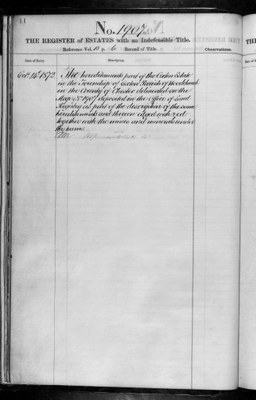 11
No. 1907
THE REGISTER of ESTATES with an Indefeasible Title.
Reference Vol. Record of Title. Observations.
Date of Entry. Description.
Oct 15th 1872. The hereditaments part of the Estate
in the Township of Parish of
in the County of Chester delineated on the
Map No 1907 deposited in the Office of Land
Registry as part of the description of the same
hereditaments and thereon edged with red
together with the mines and minerals under
the same